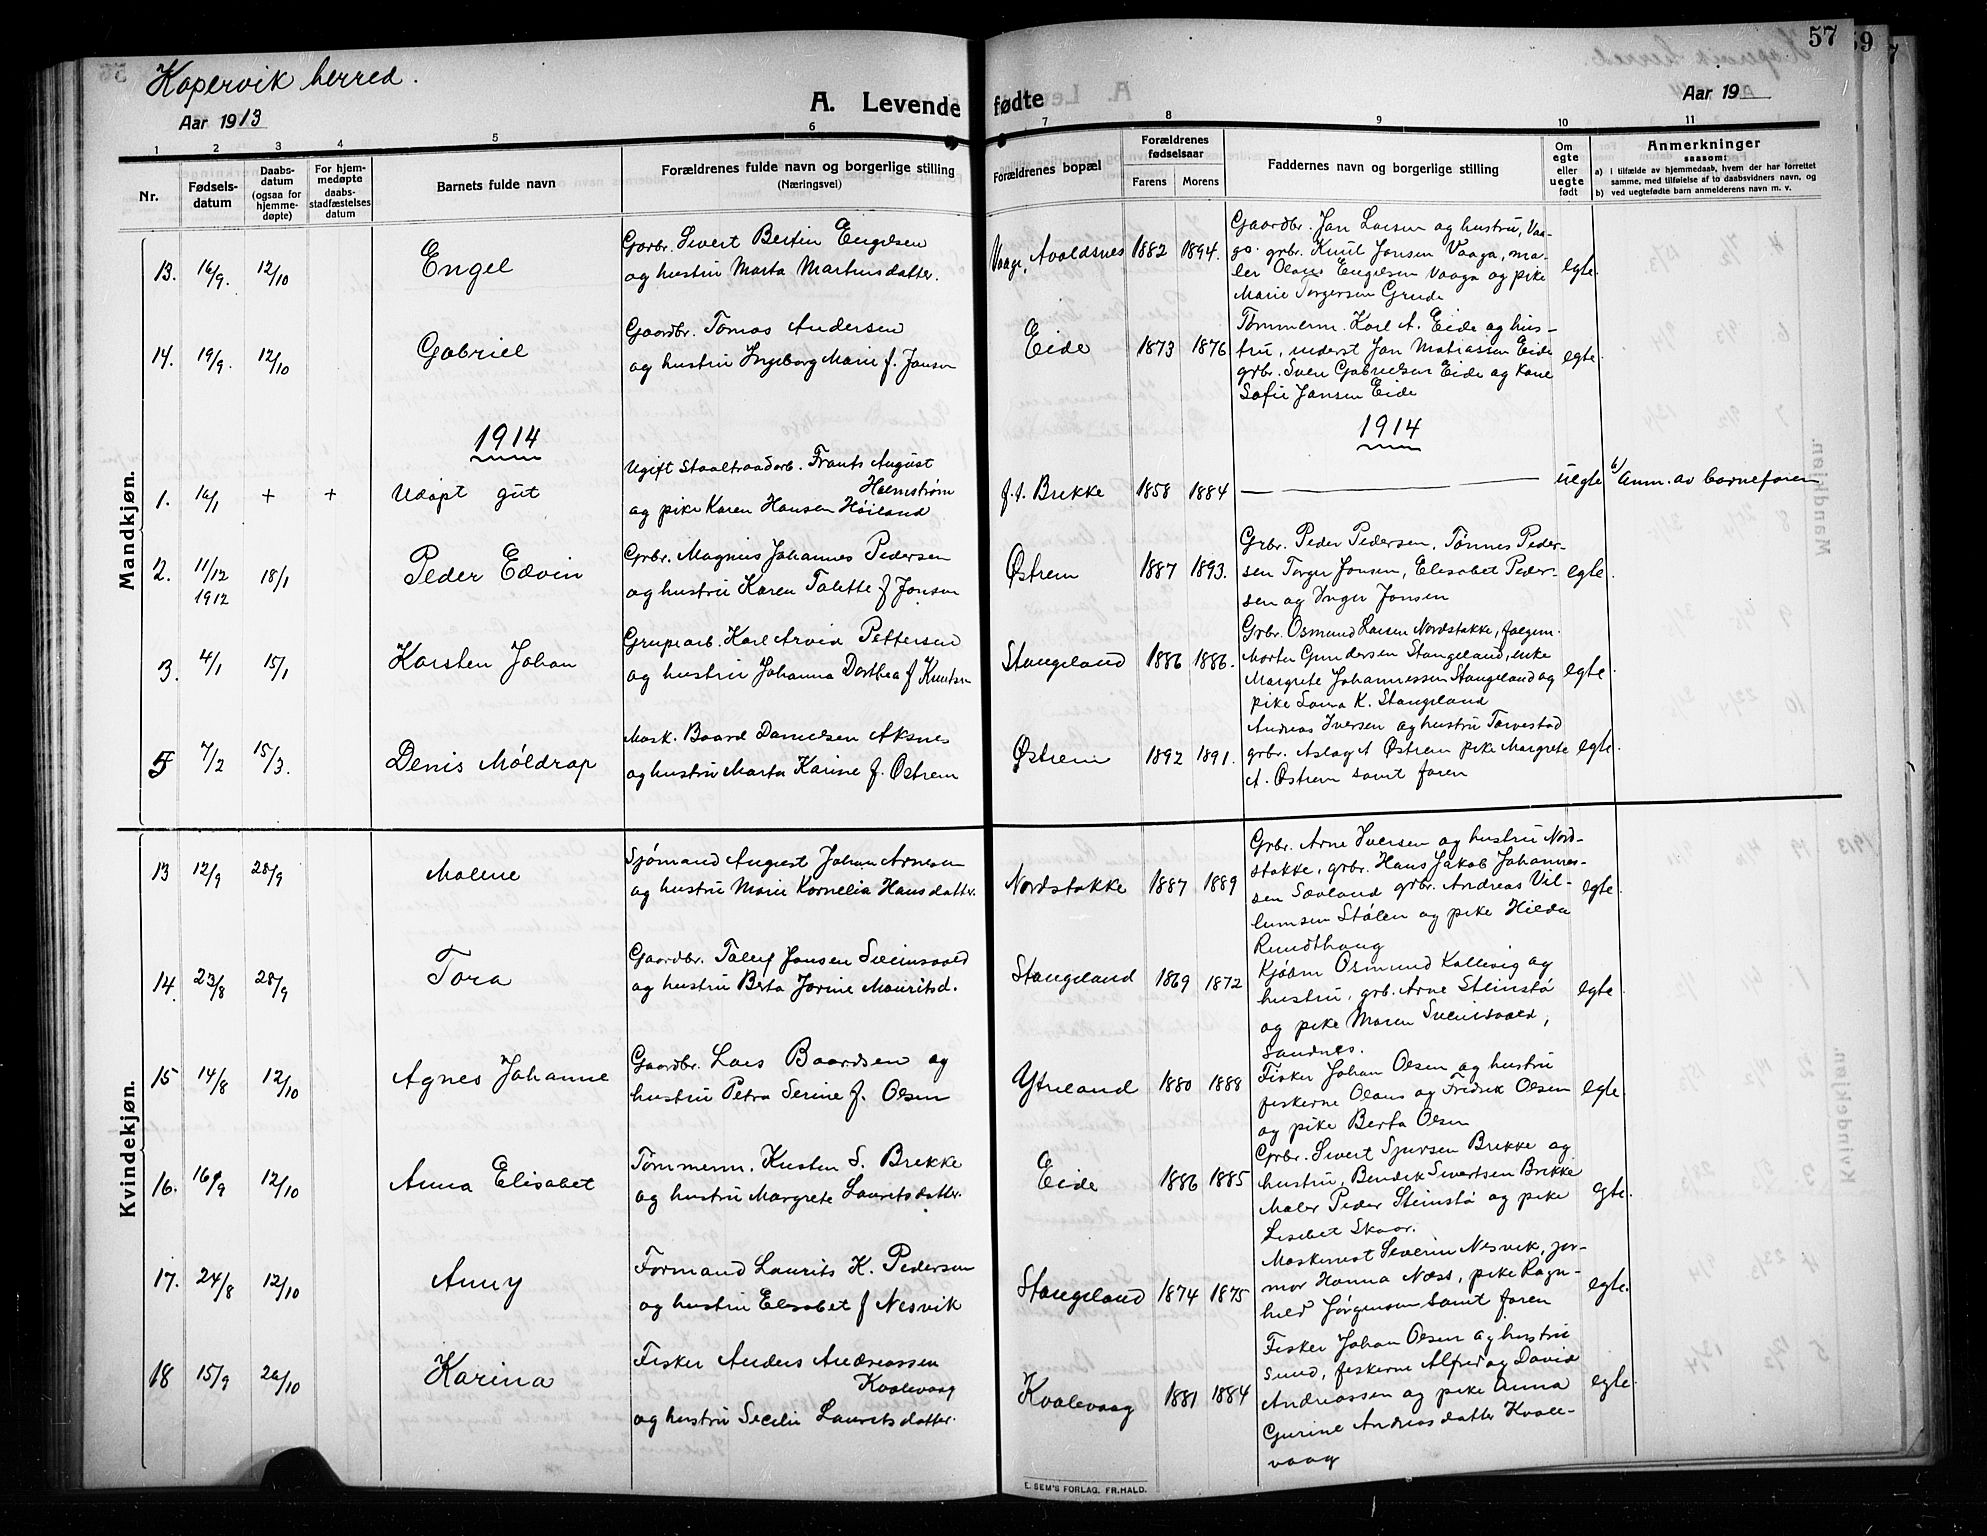 57
59
Kopervik herred.
Aar 1913
A. Levende fødte
Aar 19
1 2 3 4 5 6 7 8 9 10 11
Nr.
Fødsels-
datum
Daabs-
datum
(ogsaa for
hjemme-
døpte)
For hjem-
medøpte
daabs-
stadfæstelses
datum
Barnets fulde navn
Forældrenes fulde navn og borgerlige stilling
(Næringsvei)
Forældrenes bopæl
Forældrenes
fødselsaar
Farens Morens
Faddernes navn og borgerlige stilling
Om
egte
eller
uegte
født
Anmerkninger
saasom:
a) i tilfælde av hjemmedaab, hvem der har forrettet
samme, med tilføielse af to daabsvidners navn, og
b) ved uegtefødte barn anmelderens navn m. v.
Mandkjøn.
13. 16/9. 12/10 Engel
Garbr. Sivert Bertin Engelsen
og hustru Marta Martinsdatter.
Vaage, Avaldsnes 1882 1894.
Gaardbr. Jan Larsen og hustru, Vaa-
ge. grbr. Knut Jonsen Vaaga, ma-
ler Olaus Engelsen Vaaga og pike
Marie Torgersen Grude
egte.
14. 19/9. 12/10 Gabriel
Gaardbr. Tomas Andersen
og hustru Ingeborg Marie f. Jansen
Eide 1873 1876
Tømmerm. Karl A. Eide og hus-
tru, underst Jan Matiassen Eide
grbr. Sven Gabrielsen Eide og kone
Sofie Jansen Eide
egte.
1914
1914
1. 16/1 + + Udøpt gut
Ugift Staaltraadarb. Frants August
Holmstrøm
og pike Karen Hansen Høiland
f.t. Brekke 1858 1884
uegte b/ Anm. av barnefaren
2. 11/12 1912 18/1 Peder Edvin
Grbr. Magnus Johannes Pedersen
og hustru Karen Talette f Jonsen
Østrem 1887 1893.
Grbr. Peder Pedersen, Tønnes Peder-
sen Torger Jonsen, Elisabet Peder-
sen og Inger Jonsen
egte.
3. 4/1 15/1 Karsten Johan
Grupearb. Karl Arvid Pettersen
og hustru Johanna Dorthea f Knutsen
Stangeland 1886 1886.
Grbr. Osmund Larsen Nordstokke,
Morten Gundersen Stangeland, enke
Margrete Johannessen Stangeland og
pike Laura K. Stangeland
egte.
5 7/2 15/3. Denis Møldrap
Mask. Baard Danielsen Aksnes
og hustru Marta Karine f. Østrem
Østrem 1892 1891.
Andreas Iversen og hustru Torvestad
grbr. Aslag A Østrem pike Margrete
A. Østrem samt faren
egte.
Kvindekjøn.
13 12/9 28/9 Malene
Sjømand August Johan Arnesen
og hustru Marie Kornelia Hansdatter.
Nordstokke 1887 1889
Grbr. Arne Iversen og hustru Nord-
stokke, grbr. Hans Jakob Johannes-
sen Sævland grbr. Andreas Vil-
lumsen Stølen og pike Hilda
Rundthaug
egte.
14. 23/8 28/9 Tora
Gaardbr. Tallef Jansen Sveinsvold
og hustru Berta Jorine Mauritsd.
Stangeland 1869 1872
Kjøbm Osmund Kallevig og
hustru, grb. Arne Steinstø
og pike Maren Sveinsvold,
Sandnes.
egte.
15 14/8 12/10 Agnes Johanne
Gaardbr. Lars Baardsen og
hustru Petra Serine f. Olsen
Ytreland 1880 1888
Fisker Johan Olsen og hustru
fiskerne Olaus og Fredrik Olsen
og pike Berta Olsen
egte.
16. 16/9 12/10 Anna Elisabet
Tømmerm. Kristen S. Brekke
og hustru Margrete Lauritsdatter.
Eide 1886 1885
Grbr. Sivert Sjursen Brekke og
hustru, Bendik Sivertsen Brekke
Maler Peder Steinstø og pike
Lisebet Skaar.
egte.
17. 24/8 12/10 Anny
Formand Laurits K. Pedersen
og hustru Elisabet f Nesvik
Stangeland 1874 1875
Maskinist Severin Nesvik, jor-
mor Hanna Næss, pike Ragn-
hild Jørgensen samt faren
egte.
18 15/9 26/10 Karina
Fisker Anders Andreassen
Kvalevaag
og hustru Secilie Lauritsdatter.
Kvalevaag 1881 1884
Fisker Johan Olsen og hustru
Sund, fiskerne Alfred og David
Andreassen og pike Anna
Gurine Andreasdatter Kvale-
vaag
egte.
E. SEM'S FORLAG. FR.HALD.